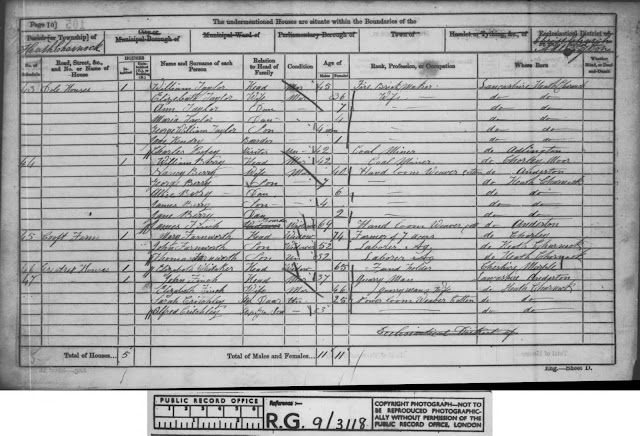 Page 10]
The undermentioned Houses are situate within the Boundaries of the
Parish [or Township] of
Heath Charnock
City or
Municipal Borough of
Municipal Ward of
Parliamentary Borough of
Town of
Hamlet or Tything, &c., of
Ecclesiastical District of
No. of Schedule
Road, Street, &c., and No. or Name of House
HOUSES
Name and Surname of each Person
Relation to Head of Family
Condition
Age of
Males
Females
Rank, Profession, or Occupation
Where Born
Whether Blind, or Deaf-and-Dumb
43 Houses 1 William Taylor Head Mar 45 Fire Brick Maker Lancashire Heath Charnock
Elizabeth Taylor Wife Mar 36 Wife do do
Ann Taylor Daur 7 do do
Maria Taylor Daur 4 do do
George William Taylor Son do do
Jane Hendry Boarder 1 do do
Charles 42 Coal Miner do Adlington
44 1 William Berry Head Mar 42 Coal Miner do Chorley Moor
Nancy Berry Wife Mar 40 Hand Loom Weaver Cotton do Anderton
George Berry Son 7 do Heath Charnock
Alice Berry Daur 6 do do
James Berry Son 4 do do
Jane Berry Daur 2 do do
James Finch 69 Hand Loom Weaver do Anderton
45 Croft Farm 1 Mary Farnworth Head Widow 74 Farmer of 7 acres do Chorley
John Farnworth Son 52 Laborer Ag do Heath Charnock
Thomas Farnworth Son Un 32 Laborer Ag do Heath Charnock
46 House 1 Elizabeth Head 65 Fund holder Cheshire
47 1 John Finch Head Mar 37 Quarry Man Lancashire Anderton
Elizabeth Finch Wife Mar 46 Quarrymans Wife do Heath Charnock
Sarah Critchley Daur Un 25 Power Loom Weaver Cotton do do
Alfred Critchley Son 3 do do
Ecclesiastical District of
Total of Houses... 5
Total of Males and Females... 11 11
Eng.—Sheet D.
PUBLIC RECORD OFFICE
1 2 3 4 5 6
Reference :-
R.G. 9/3118
COPYRIGHT PHOTOGRAPH—NOT TO
BE REPRODUCED PHOTOGRAPHIC-
ALLY WITHOUT PERMISSION OF THE
PUBLIC RECORD OFFICE, LONDON